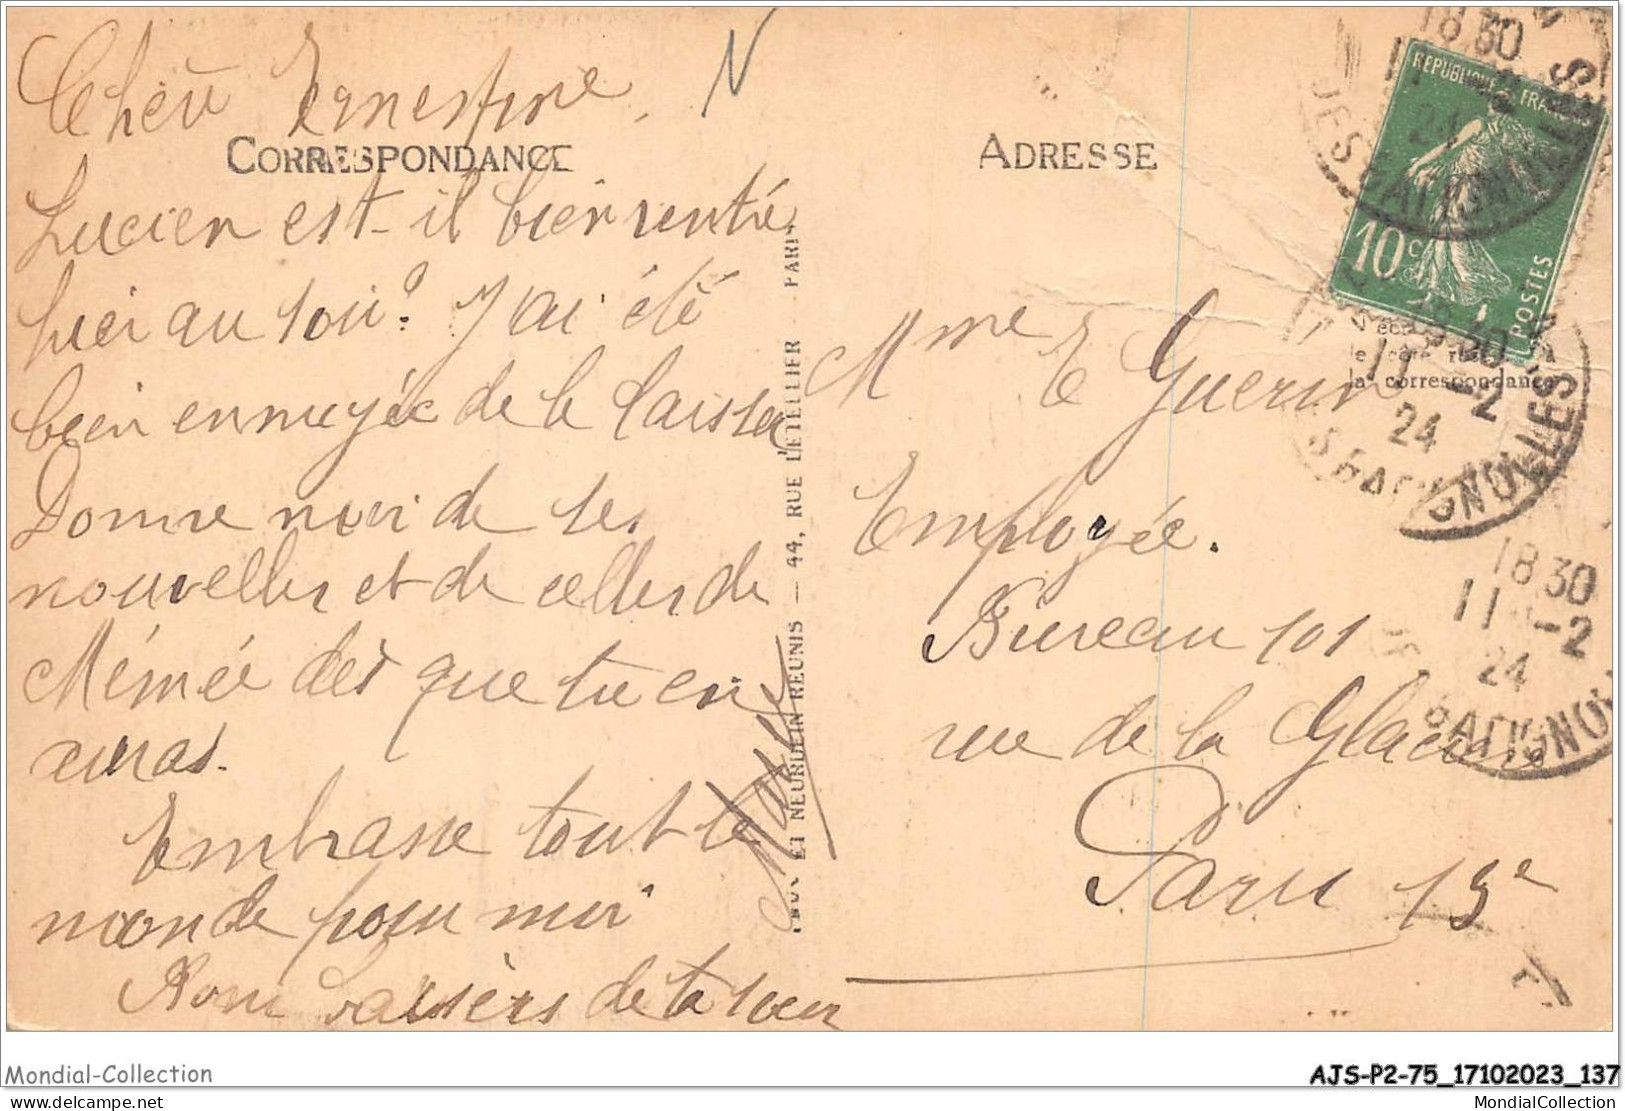 Chère Ernestine,
N
CORRESPONDANCE
Lucien est-il bien rentré
hier au soir? J'ai été
bien ennuyée de le laisser
Donne moi de tes
nouvelles et de celles de
Mémée dès que tu en
auras.
Embrasse tout le
monde pour moi
Bons baisers de ta sœur
ET NEURDEIN REUNIS — 44, RUE LETELLIER - PARIS
ADRESSE
REPUBLIQUE FRANÇAISE
10c
POSTES
la correspondance
Mme E Guerin
Employée.
Bureau 101
rue de la Glacière
Paris 13e
18 30
11 -2
24
BATIGNOLLES
18 30
11 -2
24
BATIGNOLLES
18 30
11 -2
24
BATIGNOLLES
Mondial-Collection
AJS-P2-75_17102023_137
delcampe.net
MondialCollection